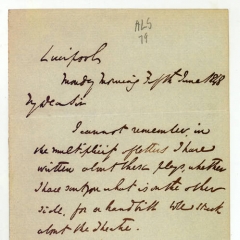 ALS
79
Liverpool
Monday Morning Fifth June 1848
My Dear Sir
I cannot remember, in
the multiplicity of letters I have
written about these plays, whether
I have sent you what is on the other
side, for a handbill to be stuck
about the Theatre.